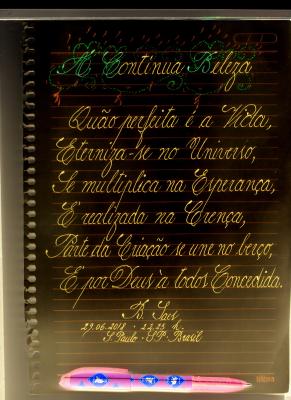 A Contínua Beleza
Quão perfeita é a Vida,
Eterniza-se no Universo,
Se multiplica na Esperança,
É realizada na Crença,
Parte da Criação se une no berço,
E por Deus à todos Concedida.
B. Saes
29.06.2018 - 22,25 h.
S. Paulo - SP - Brasil